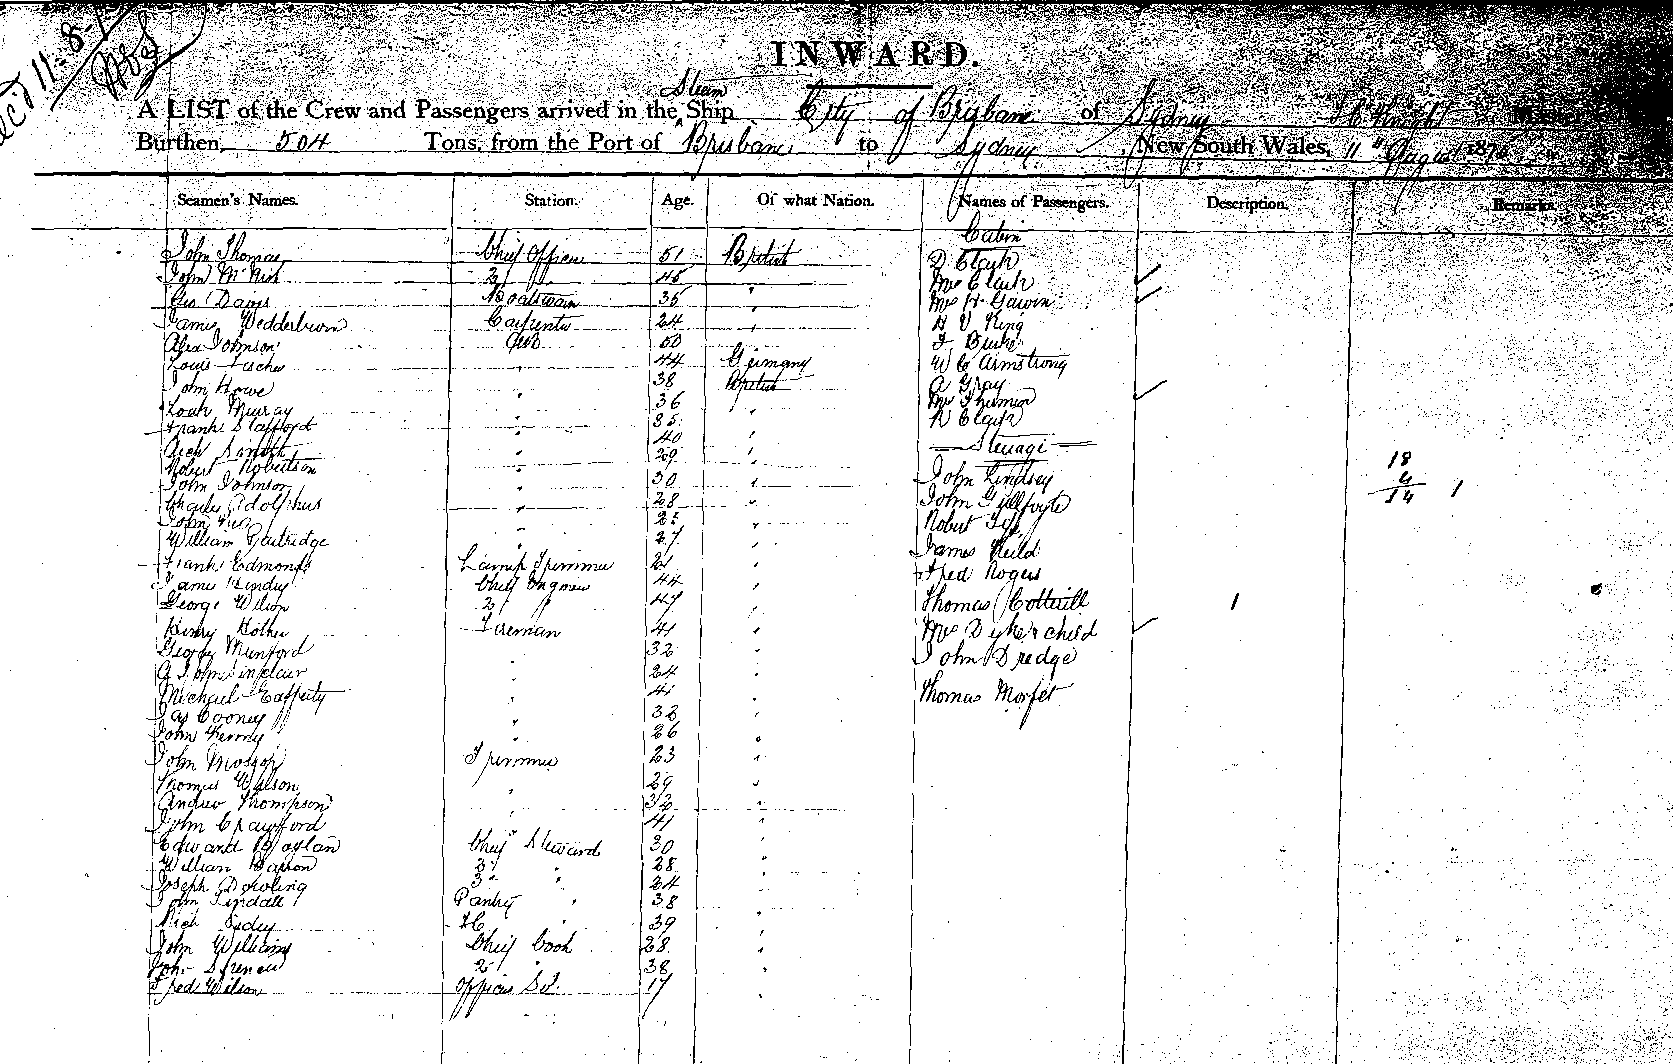 11-8-
INWARD.
Steam
A LIST of the Crew and Passengers arrived in the Ship City of Brisbane of Sydney Knight Master
Burthen, 504 Tons, from the Port of Brisbane to Sydney, New South Wales, 11 August 187
Seamen's Names. Station. Age. Of what Nation. Names of Passengers. Description. Remarks
Cabin
John Thomas Chief Officer 51 British Clark
John McNish 2 45 " Mrs Clark
Geo Davis Boatswain 35 " Mrs H Gawin
James Wedderburn Carpenter 24 " H V King
Alex Johnson AB 50 "
Louis Fischer " 44 Germany W C Armstrong
John Howe " 38 British A Gray
Murray " 36 " Mrs
Frank Stafford " 35 " Clark
Rich Smith " 40 " Steerage
Robert Robertson " 29 "
John Johnson " 30 " John Lindsey 18
Charles Adolphus " 28 " John Gullfoyle 4
John " 25 " Robert 14 1
William Partridge " 27 " James Neild
Frank Edmonds Lamp Trimmer 21 " Fred Rogers
James Chief Engineer 44 "
George Wilson 2 " 47 " Thomas Cotterill 1
Henry Fireman 41 " Mrs Dyke & child
George Munford " 32 " John Dredge
Sinclair " 24 "
Michael Cafferty " 41 " Thomas
Jas Cooney " 32 "
John Kenny " 26 "
John Trimmer 23 "
Thomas Wilson " 29 "
Andrew Thompson " 32 "
John Crawford " 41 "
Edward Boylan Chief Steward 30 "
William Barron 2 " 28 "
Joseph Dowling 3 " 24 "
John Tindall Pantry " 38 "
Rich " 39 "
John Williams Chief Cook 28 "
John 2 " 38 "
Fred Wilson Officers St. 17 "